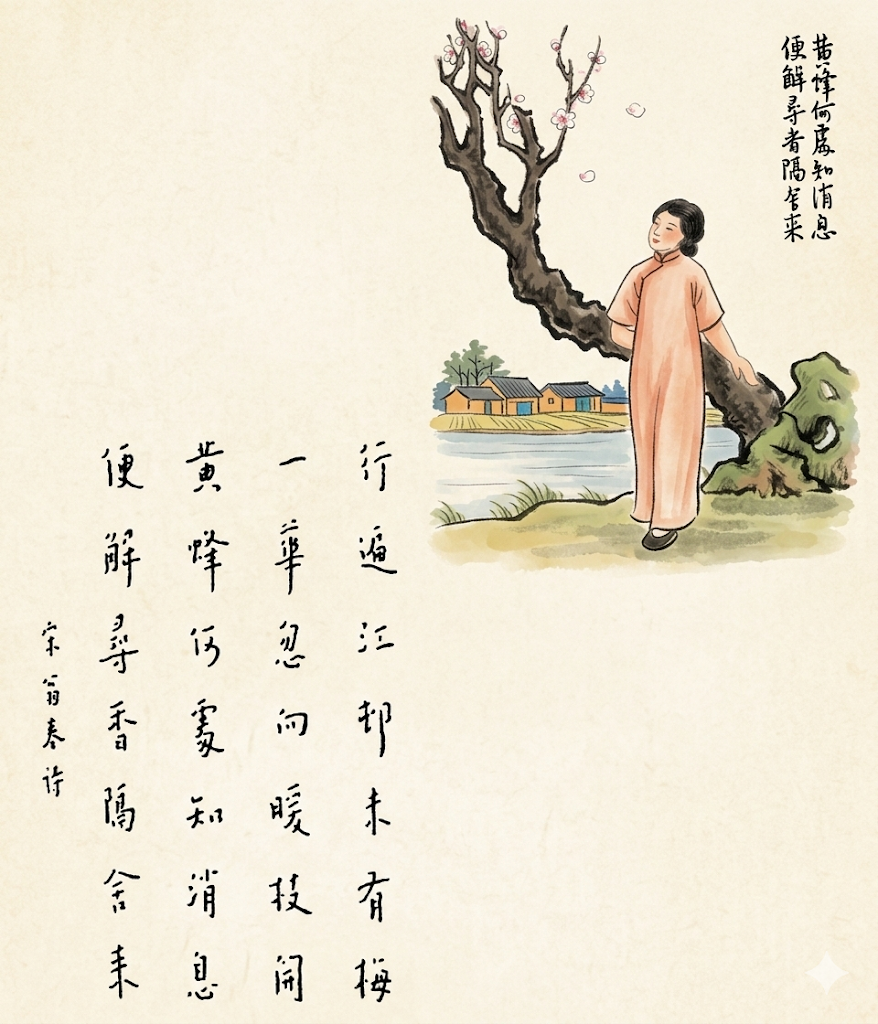 黄蜂何處知消息
便解尋香隔舍来
行遍江邨未有梅
一華忽向暖枝開
黄蜂何處知消息
便解尋香隔舍来
宋翁卷诗